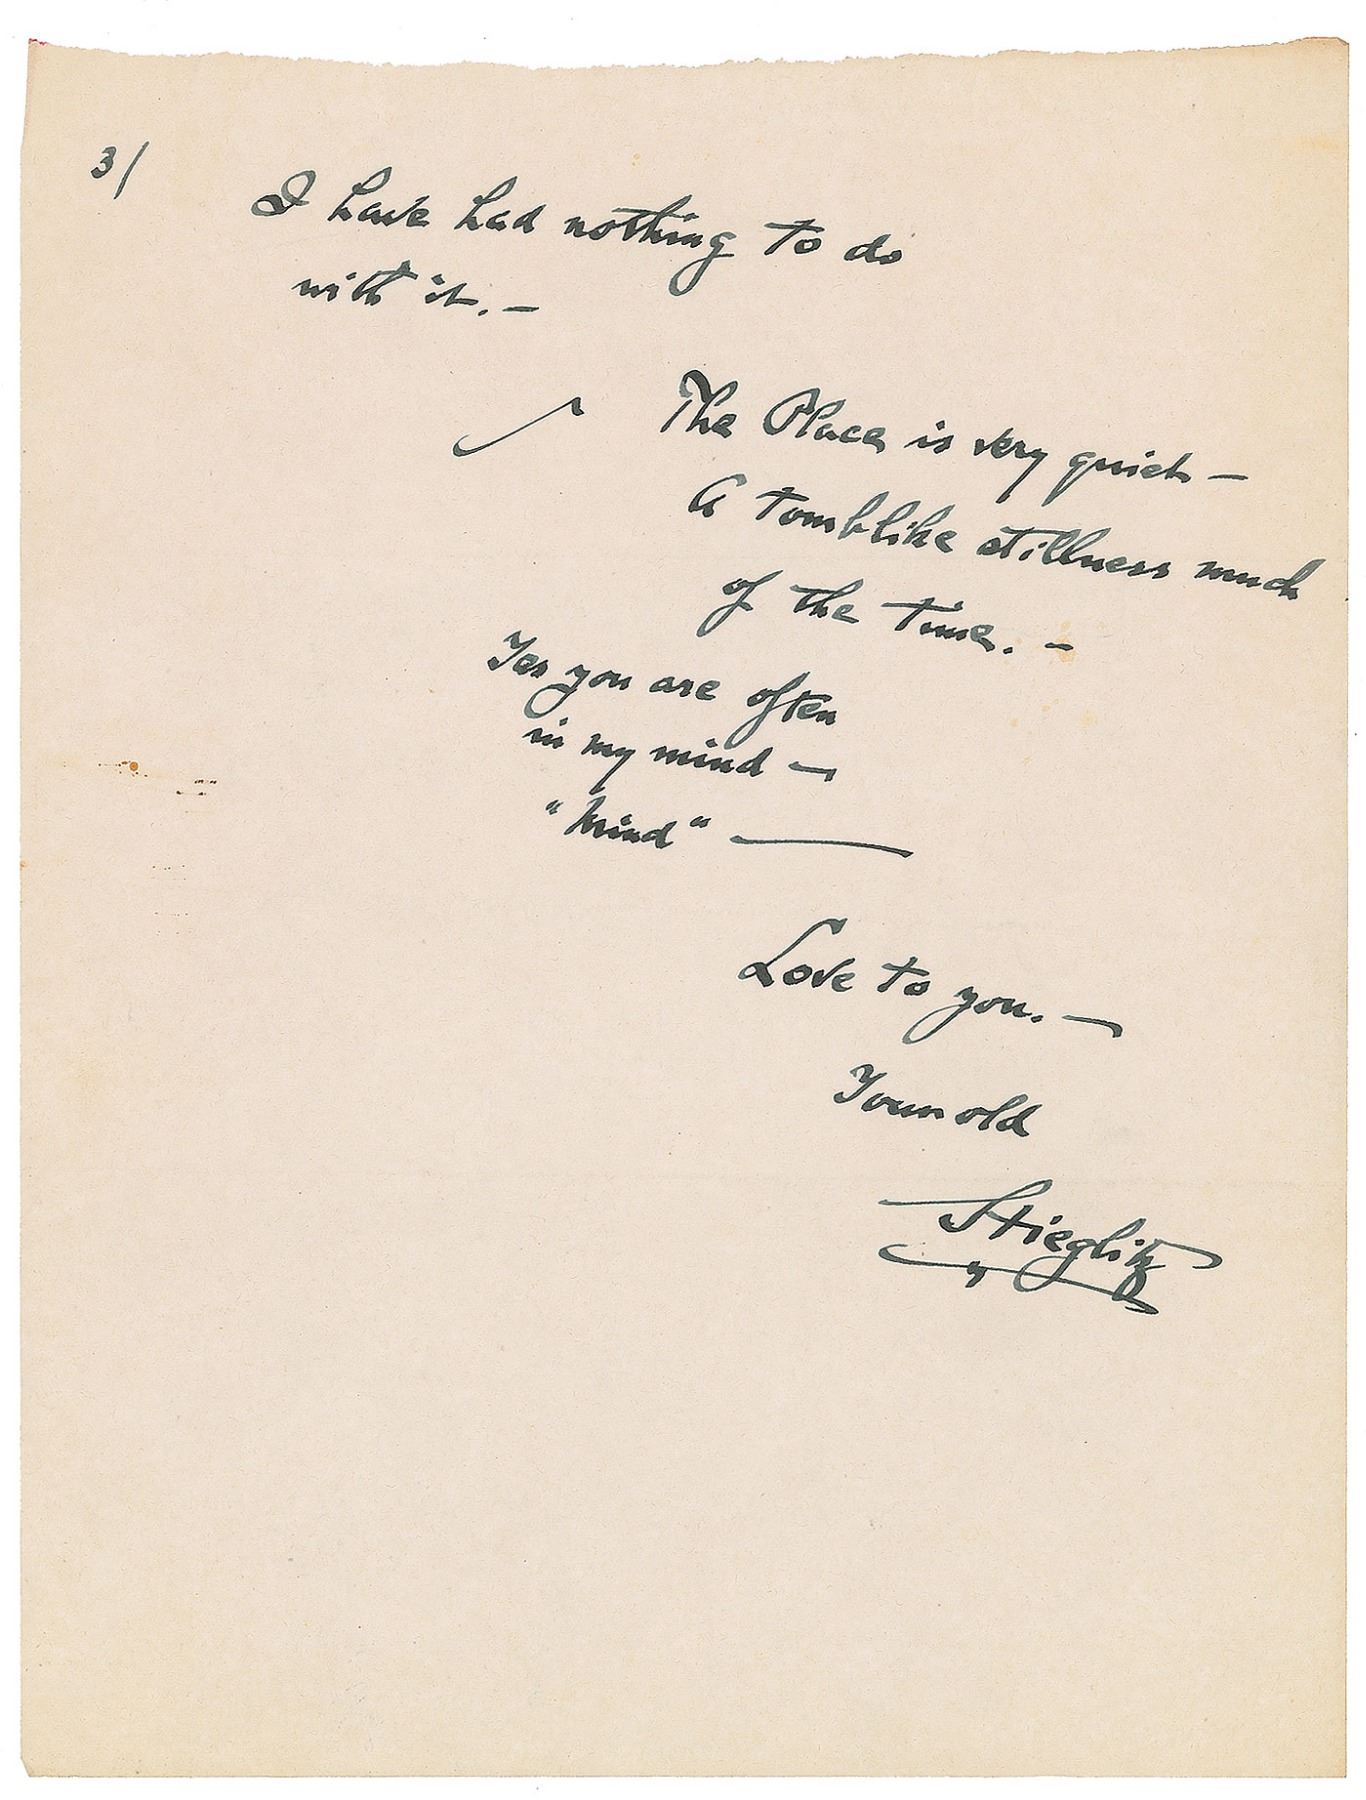 3/
I have had nothing to do
with it. —
The Place is very quiet —
A tomblike stillness much
of the time. —
Yes you are often
in my mind —
"Mind" —
Love to you. —
Your old
Stieglitz